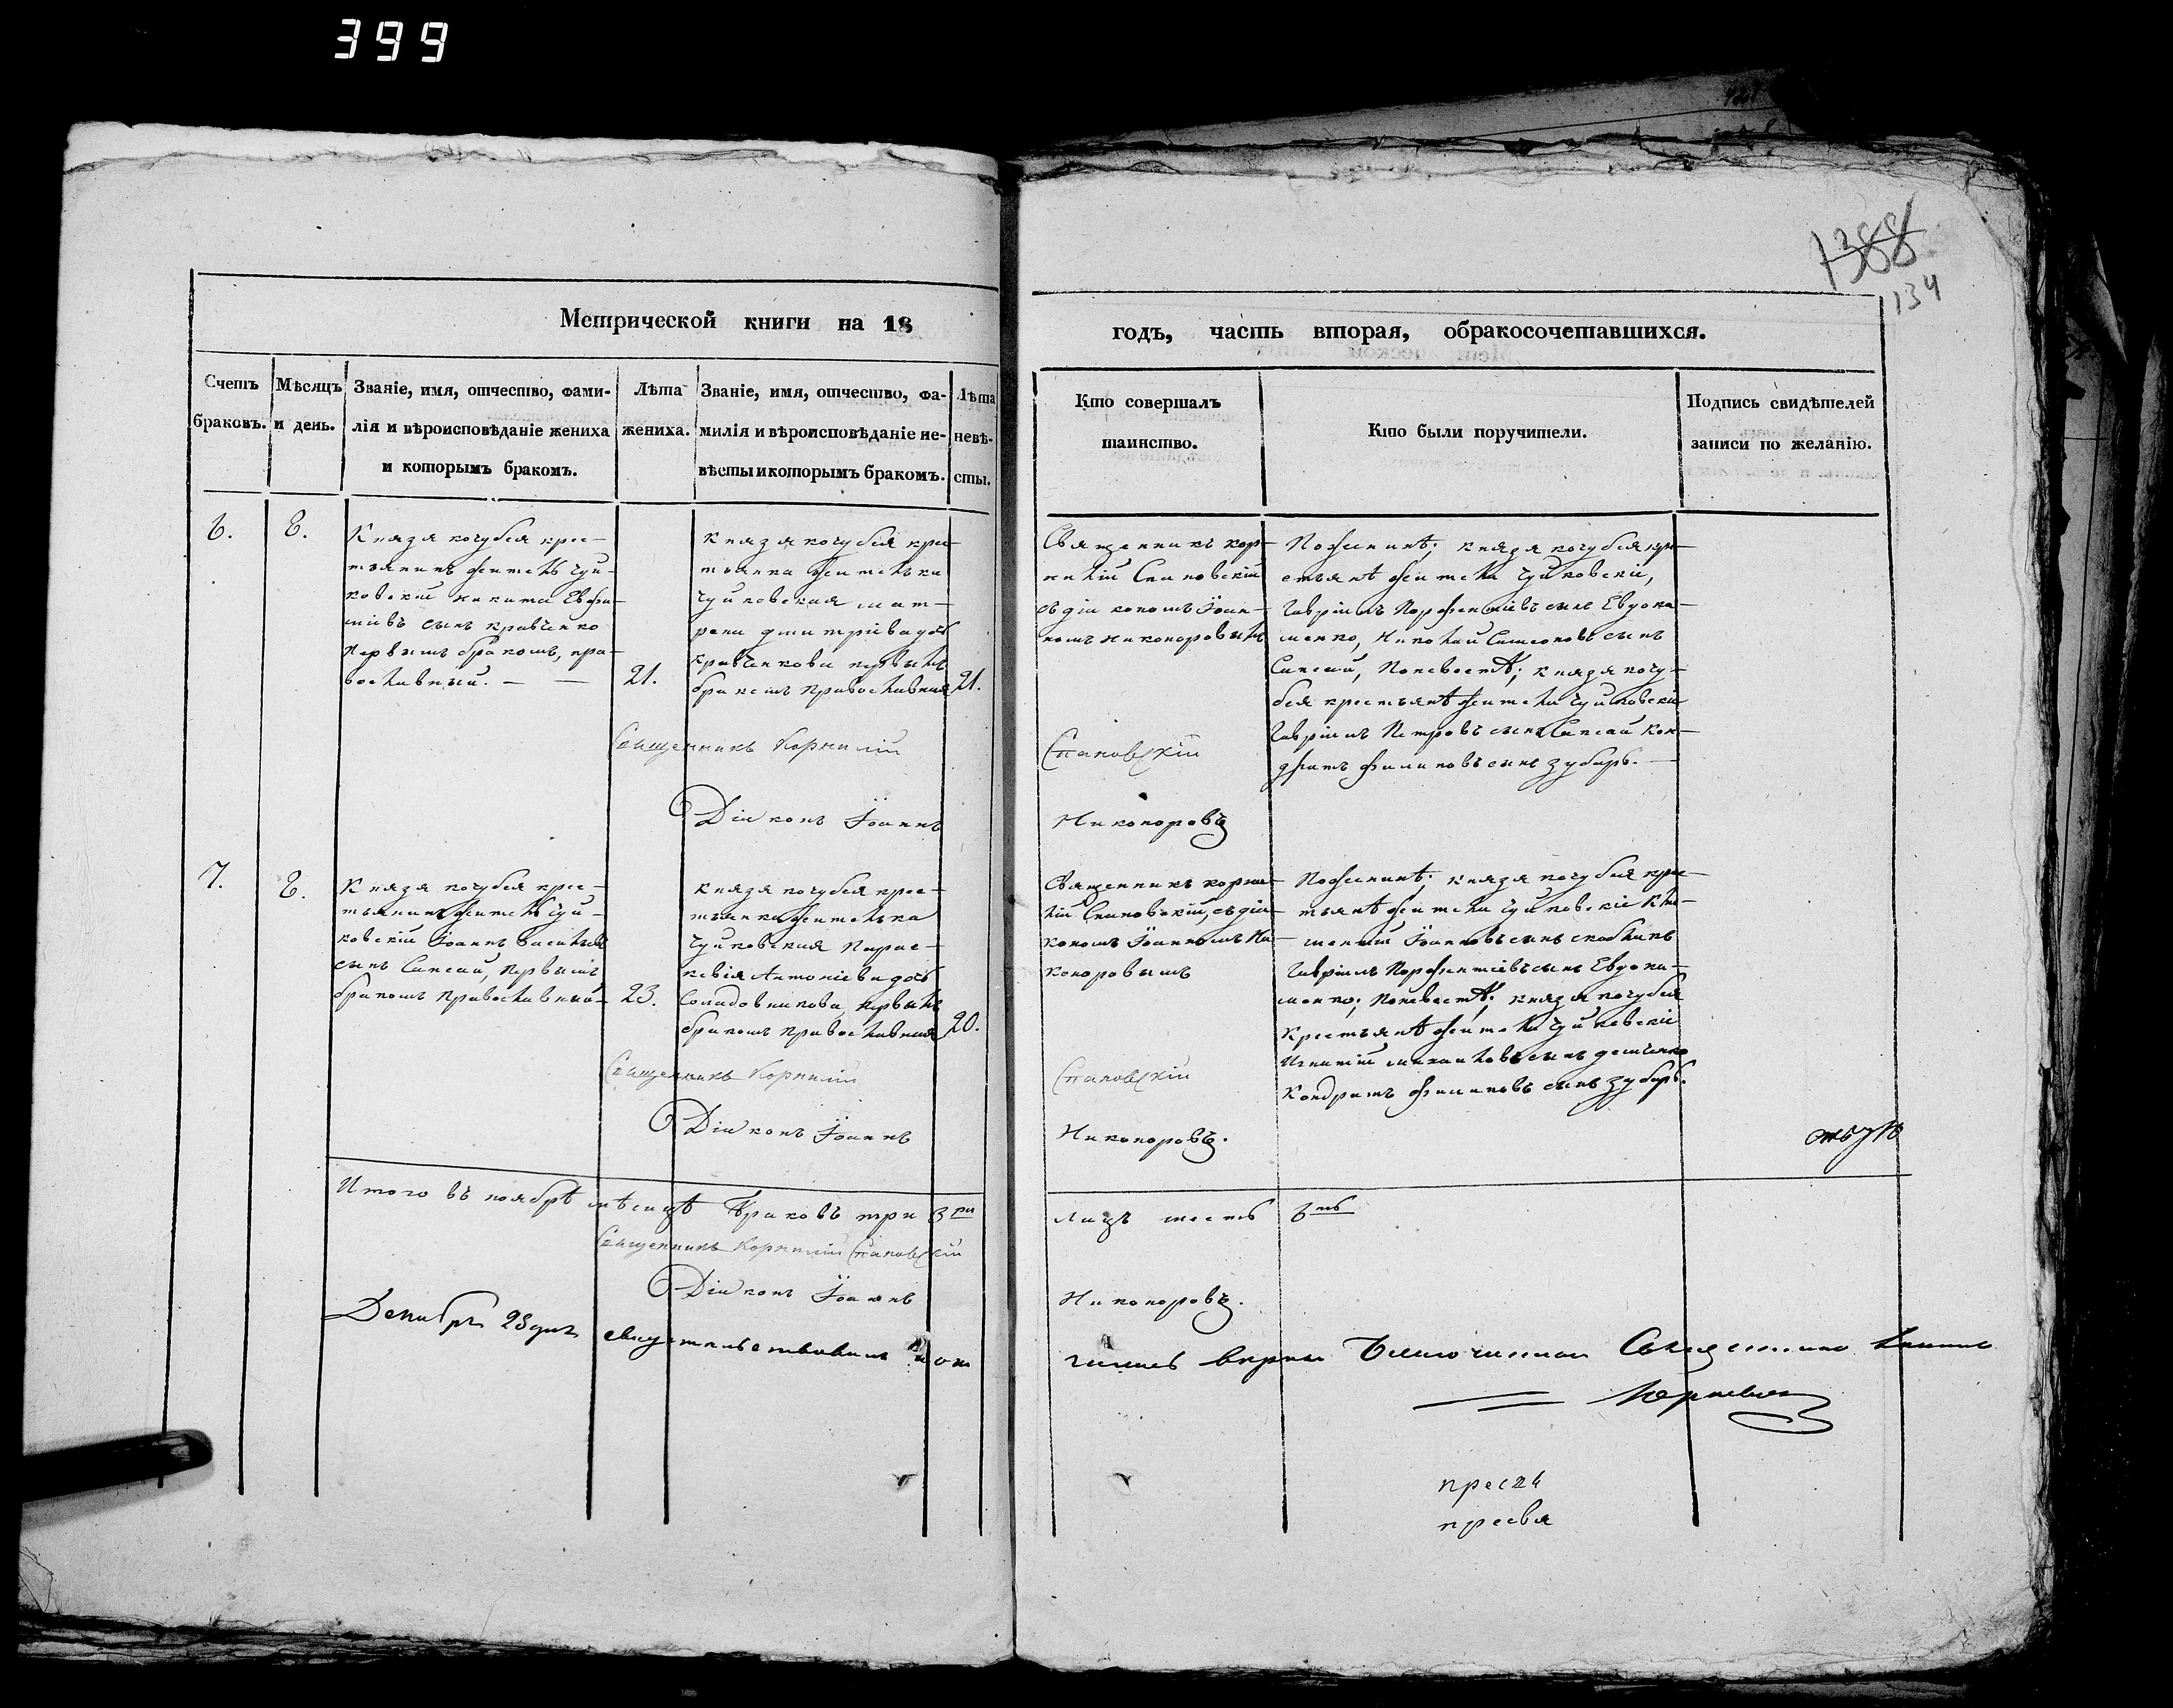 399
1388
134
Метрической книги на 18
годъ, часть вторая, обракосочетавшихся.
Счетъ браковъ.
Мѣсяцъ и день.
Званіе, имя, отчество, фами-
лія и вѣроисповѣданіе жениха
и которымъ бракомъ.
Лѣта жениха.
Званіе, имя, отчество, фа-
милія и вѣроисповѣданіе не-
вѣсты и которымъ бракомъ.
Лѣта невѣ-
сты.
Кто совершалъ
таинство.
Кто были поручители.
Подпись свидѣтелей
записи по желанію.
6.
8.
Князя кочубея крес-
тьянинъ житель чуй-
ковскій никита Евфи-
міевъ сынъ кравченко
первымъ бракомъ, пра-
вославный. — —
21.
Князя кочубея крес-
тьянка жителька
чуйковская мат-
рона дмитріева дочь
кравченкова первымъ
бракомъ православная
21.
Священникъ кор-
нилій Спановскій
съ діакономъ Іоан-
номъ никоноровымъ
По женихѣ; князя кочубея кре-
стьянѣ жители чуйковскіе,
Гавріилъ Порфентіевъ сынъ Евдоки-
менко, Николай Симеоновъ сынъ
Сипсай, По невестѣ; князя кочу-
бея крестьянѣ жители чуйковскіе
Гавріилъ Петровъ сынъ Сипсай кон-
дратъ филиповъ сынъ зубарь. —
Священникъ Корнилій Спановскій
Діаконъ Іоаннъ Никоноровъ
7.
8.
Князя кочубея крес-
тьянинъ житель чуй-
ковскій Іоаннъ василіевъ
сынъ Сипсай, первымъ
бракомъ православный
23.
князя кочубея крес-
тьянка жителька
чуйковская Парас-
кевія Антоніева дочь
Соладовникова, первымъ
бракомъ православная
20.
Священникъ корни-
лій Спановскій, съ діа-
кономъ Іоанномъ Ни-
коноровымъ
По женихѣ; князя кочубея крес-
тьянѣ жители чуйковскіе Кли-
ментій Іоанновъ сынъ
Гавріилъ Порфентіевъ сынъ Евдоки-
менко; По невестѣ; князя кочубея
крестьянѣ жители чуйковскіе
Игнатій михайловъ сынъ демченко
Кондратъ филиповъ сынъ зубарь.
Священникъ Корнилій Спановскій
Діаконъ Іоаннъ Никоноровъ.
Итого въ ноябрѣ мѣсяцѣ браковъ три 3ри лицъ шесть 6ть
Священникъ Корнилій Спановскій
Діаконъ Іоаннъ Никоноровъ.
Декабря 28 дня свидетельствовалъ
верны Благочинный Священникъ